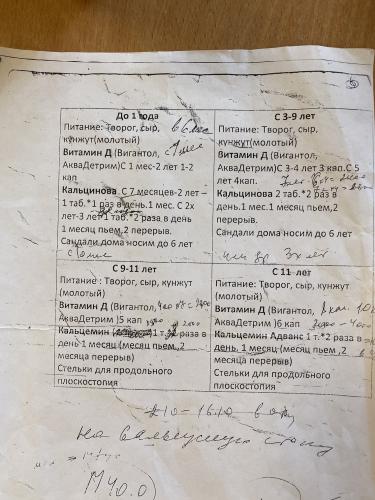 До 1 года
Питание: Творог, сыр,
кунжут(молотый)
Витамин Д (Вигантол,
АкваДетрим)С 1 мес-2 лет 1-2
кап
Кальцинова С 7 месяцев-2 лет –
1 таб.*1 раз в день.1 мес. С 2х
лет-3 лет 1 таб.*2 раза в день
1 месяц пьем,2 перерыв.
Сандали дома носим до 6 лет
С 3-9 лет
Питание: Творог, сыр,
кунжут(молотый)
Витамин Д (Вигантол,
АкваДетрим)С 3-4 лет 3 кап.С 5
лет 4кап.
Кальцинова 2 таб.*2 раза в
день.1 мес.1 месяц пьем,2
перерыв.
Сандали дома носим до 6 лет
3х лет
С 9-11 лет
Питание : Творог, сыр, кунжут
(молотый)
Витамин Д (Вигантол,
АкваДетрим )5 кап
Кальцемин 1 т. 2 раза в
день 1 месяц (месяц пьем,2
месяца перерыв)
Стельки для продольного
плоскостопия
С 11 лет
Питание: Творог, сыр, кунжут
(молотый)
Витамин Д (Вигантол,
АкваДетрим )6 кап
Кальцемин Адванс 1 т.*2 раза в
день. 1 месяц (месяц пьем ,2
месяца перерыв)
Стельки для продольного
плоскостопия
на вальгусную стопу
М40.0